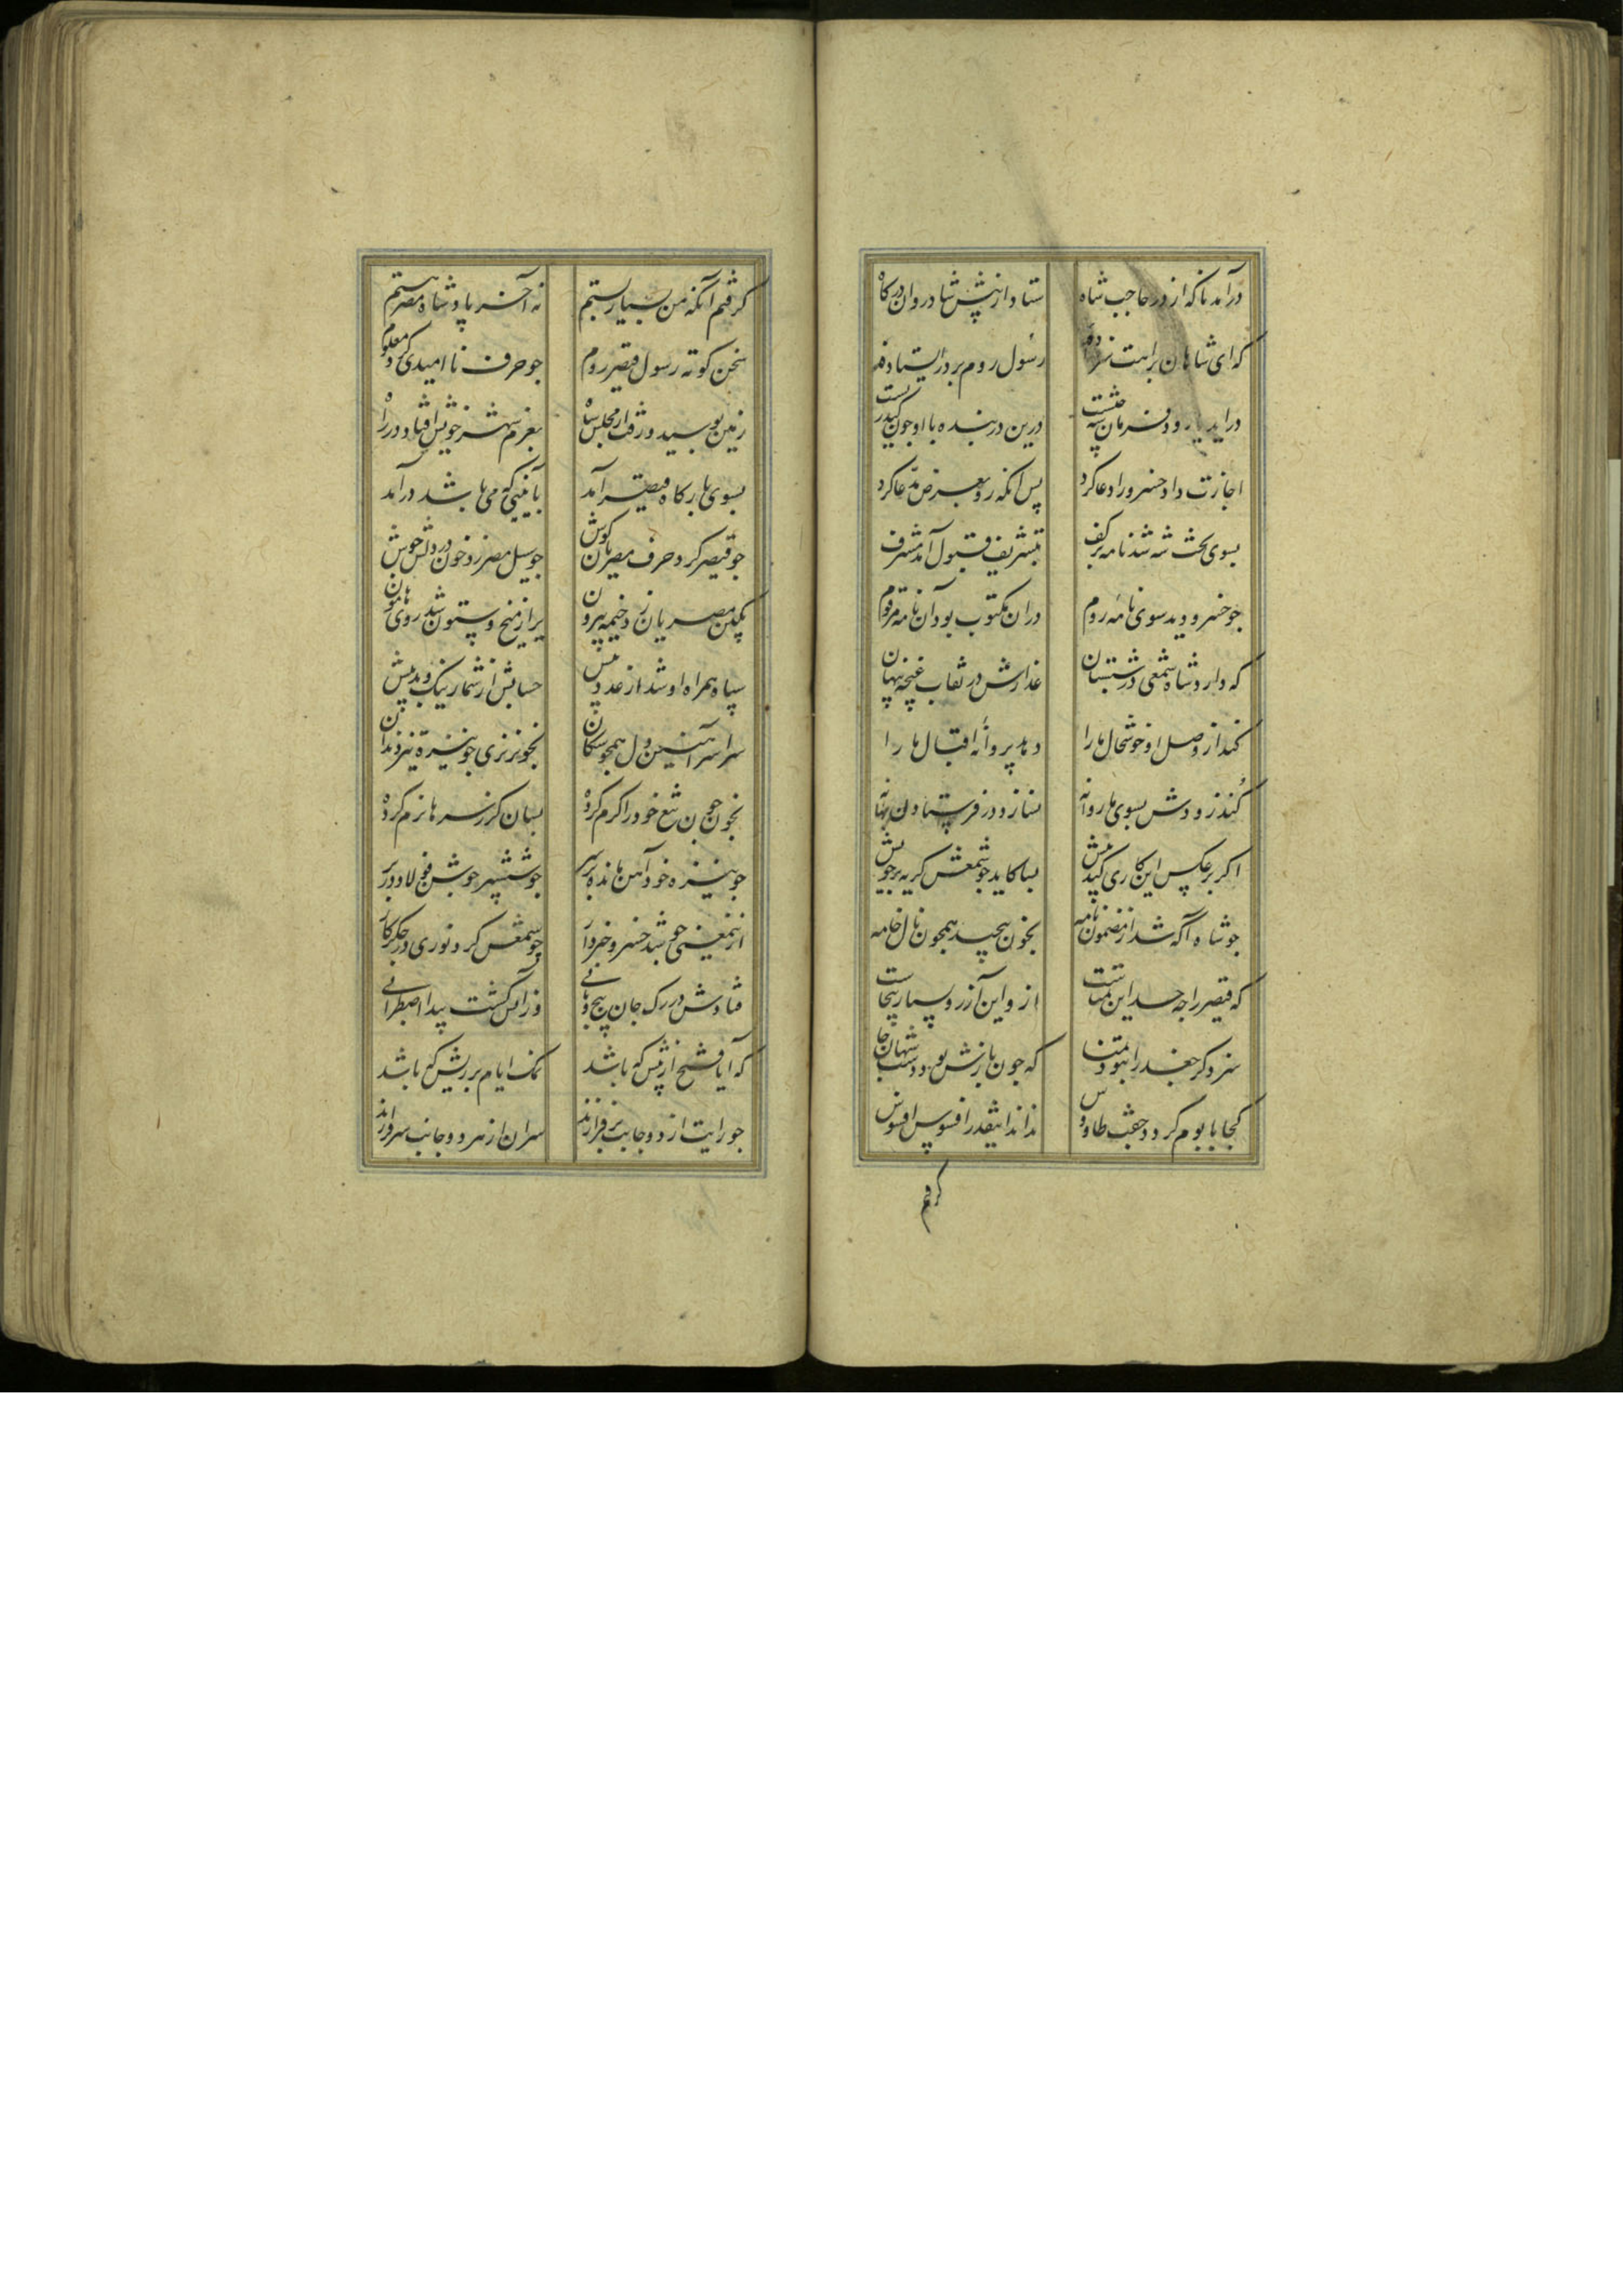 درآمد ناکه از در حاجب شاه ستاد از پیش شادروان درکاه
که ای شاهان براهت سر نهاده رسول روم بر در ایستاده
اجازت داد خسرو را دعا کرد پس انکه رو بعرض مدعا کرد
بسوی تخت شه شد نامه برکف بتشریف قبول آمد مشرف
جو خسرو دید سوی نامه روم دران مکتوب بود آن نامه مرقوم
که دارد شاه شمعی در شبستان عذارش در نقاب غنچه پنهان
کند از وصل او خوشحال ما را دهد پروانه اقبال ما را
کند زودش بسوی ما روانه نسازد در فرستادن بهانه
اکر بر عکس این کاری کند پیش بسا کاید جو شمعش کریه بر خویش
جو شاه آکه شد از مضمون نامه بخون پیچید همچون نال خامه
که قیصر را جه حد این تمناست ازو این آرزو بسیار بیجاست
سزد کر جغد را نبود تمنا که جون بازش بود دست شهان جا
کجا با بوم کردد جفت طاوس نداند اینقدر افسوس افسوس
کرفتم
کرفتم آنکه من بسیار پستم نه آخر پادشاه مصر هستم
سخن کوته رسول قیصر روم جو حرف ناامیدی کرد معلوم
زمین بوسید و رفت از مجلس شاه بعزم شهر خویش افتاد در راه
بسوی بارکاه قیصر آمد بآیینی که می باشد درآمد
جو قیصر کرد حرف مصریان کوش جو سیل مصر زد خون در دلش جوش
بکین مصریان زد خیمه بیرون پر از میخ و ستون شد روی هامون
سپاه همراه او شد از عدد بیش حسابش از شمار نیک و بد بیش
سراسر آهنین دل همجو پیکان بخونریزی جو نیزه تیز دندان
بخون جون تیغ خود را کرم کرده بسان کرز سرها نرم کرده
جو نیزه خود آهن مانده بر سر جو ششپر جوشن فولاد در بر
ازین معنی جو شد خسرو خبردار جو شمعش کرد نوری در جکر کار
فتادش در رک جان پیچ و تابی وزان کشت پیدا اضطرابی
که آیا فتح از پیش که باشد نمک ایام بر ریش که باشد
جو رایت از دو جانب برفرازند سران از هر دو جانب